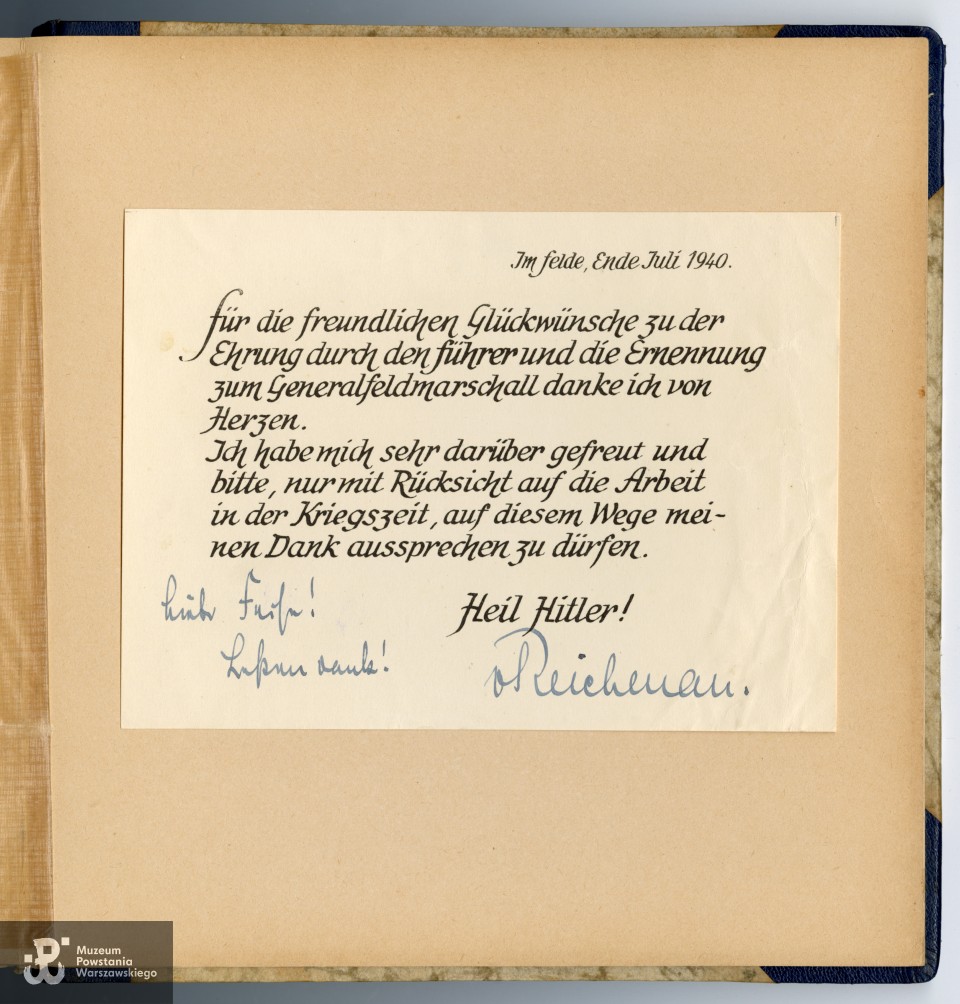 Im Felde, Ende Juli 1940.
Für die freundlichen Glückwünsche zu der
Ehrung durch den Führer und die Ernennung
zum Generalfeldmarschall danke ich von
Herzen.
Ich habe mich sehr darüber gefreut und
bitte, nur mit Rücksicht auf die Arbeit
in der Kriegszeit, auf diesem Wege mei-
nen Dank aussprechen zu dürfen.
Heil Hitler!
Besten Dank!
vReichenau.
Muzeum
Powstania
Warszawskiego